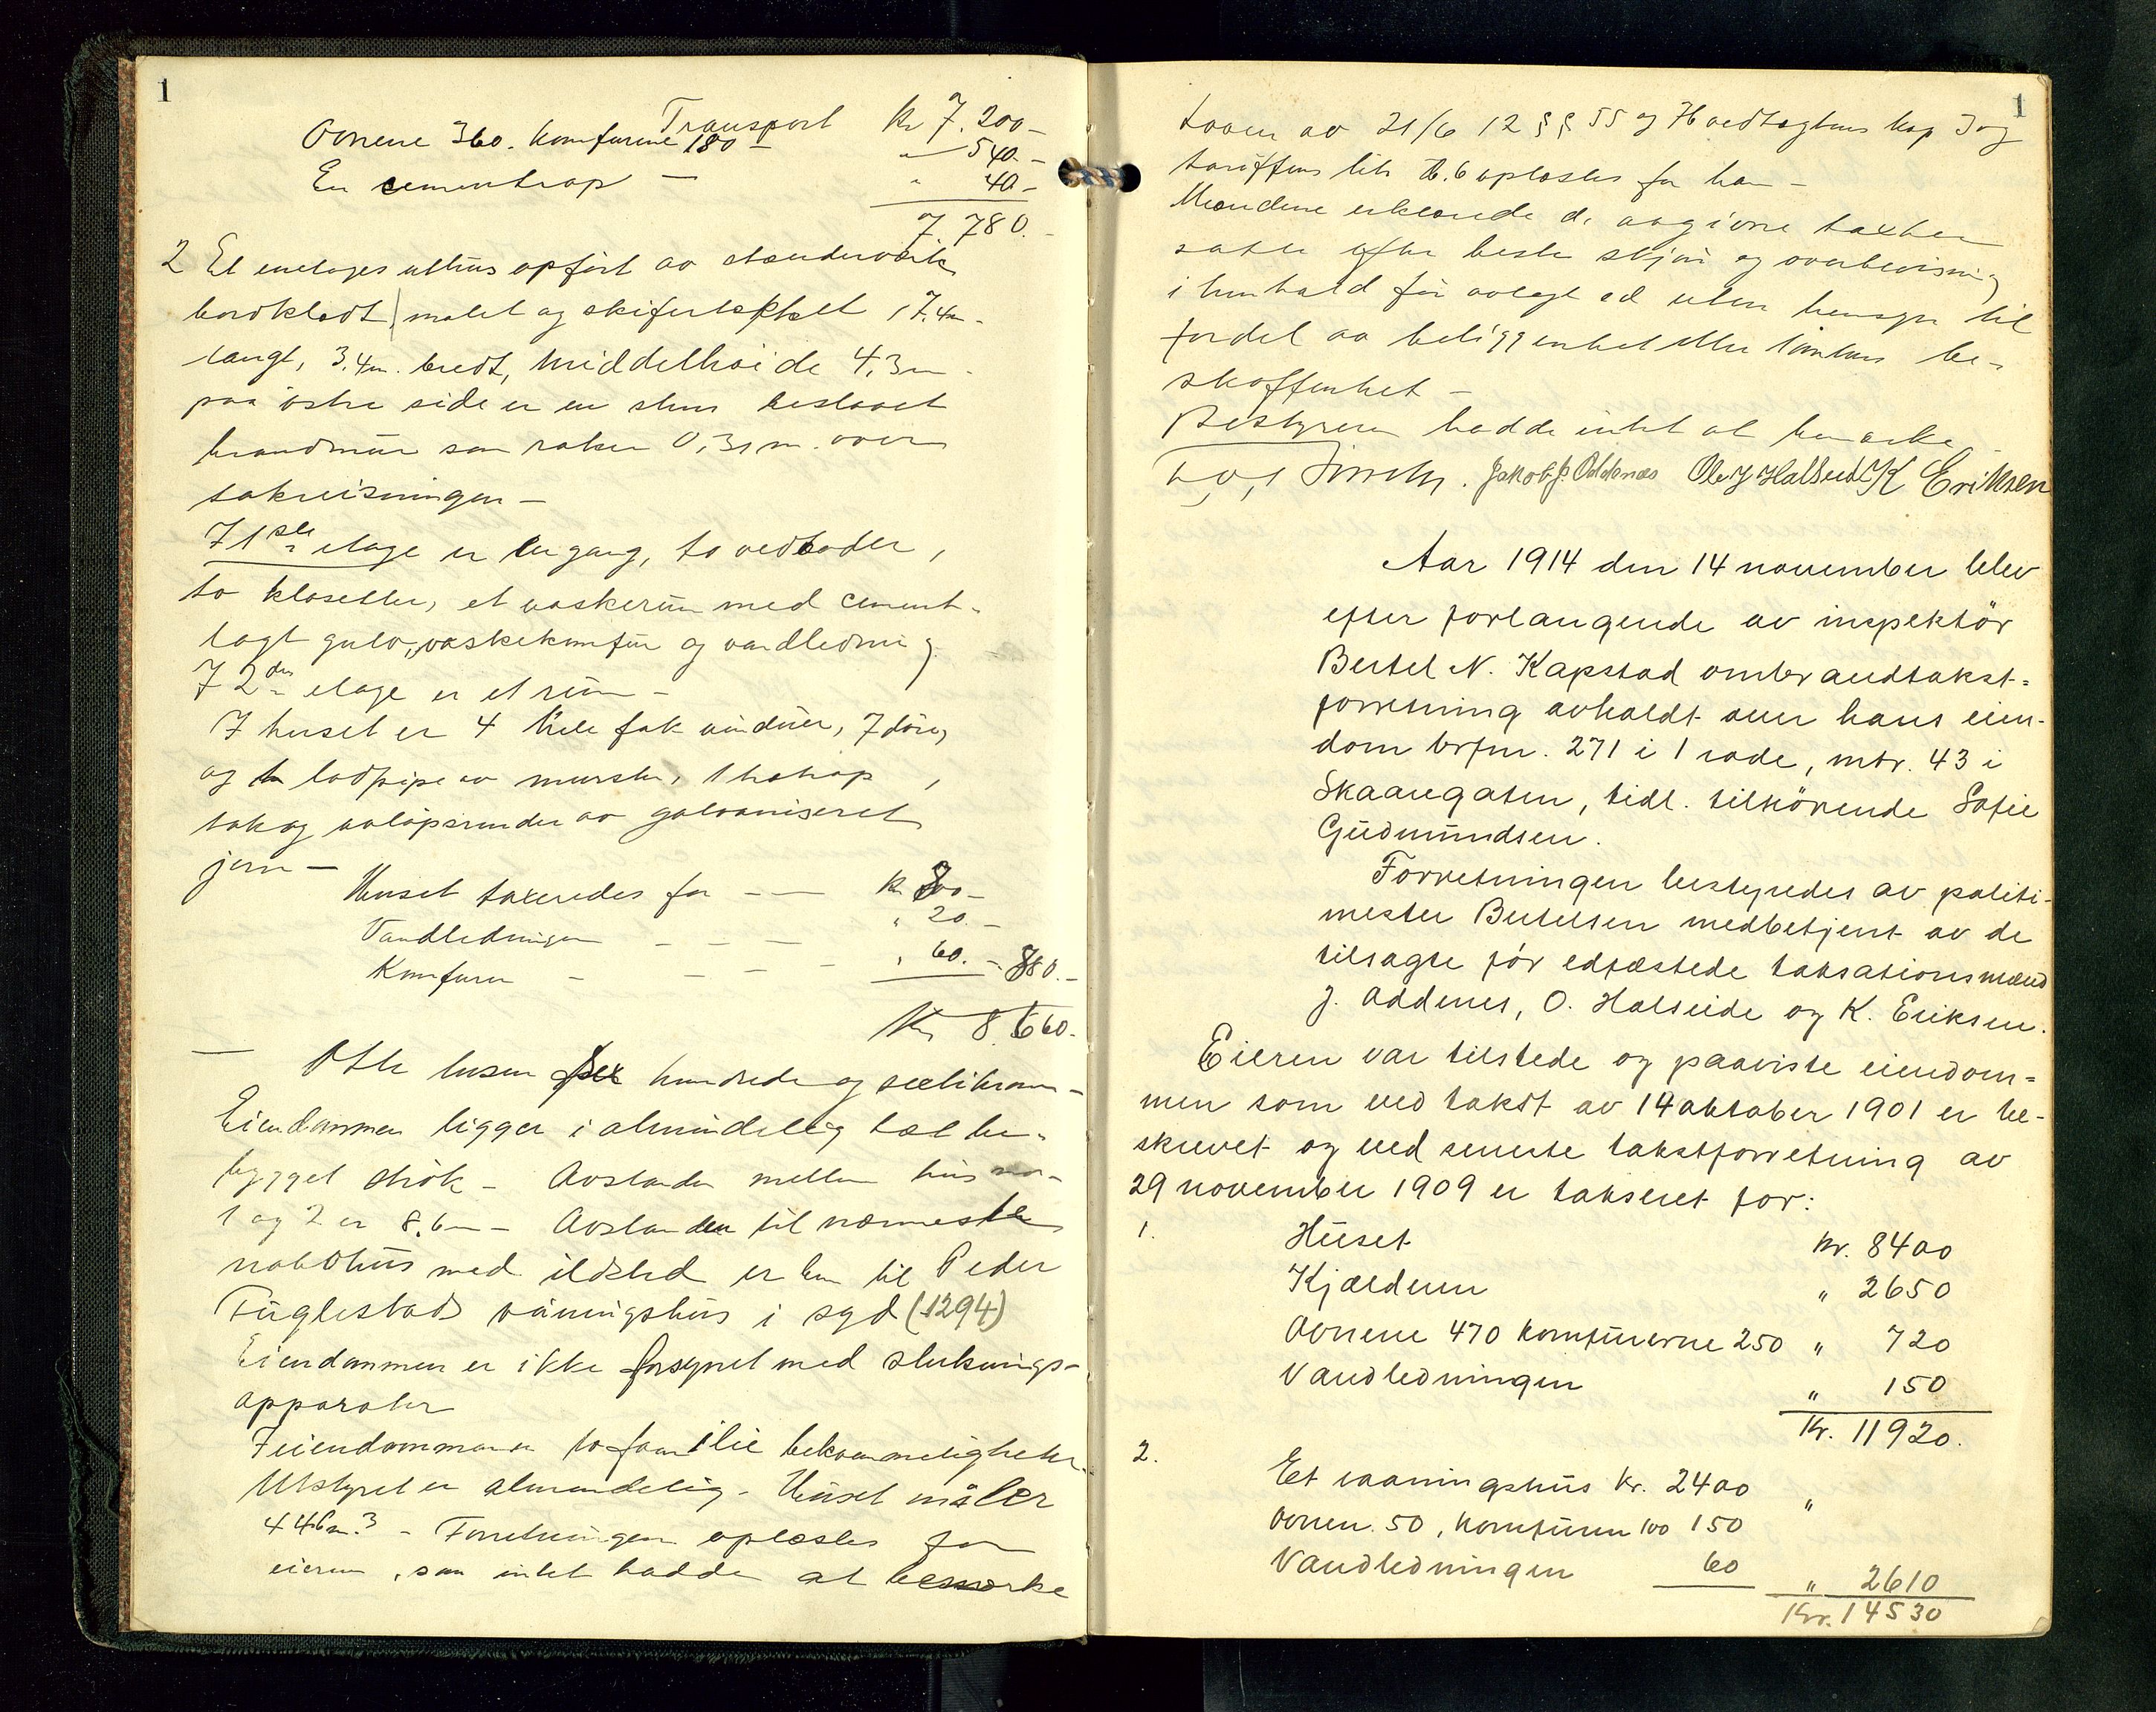 1
Transport Kr 7.200-
Ovnene 360. Komfurene 180 - " 540.-
En cementrap - " 40-
7.780.-
2 Et enetages uthus opført av stænderverk
bordklædt malet og skifertækket 17.4m.
langt, 3.4m. bredt, middelhøide 4.3m.
paa østre side er en
brandmur som raker 0,31 m. over
takreisningen -
I 1ste etage er en gang, to vedboder,
to klosetter, et vaskerum med cement-
lagt gulv, vaskekomfur og vandledning
I 2den etage er et rum -
I huset er 4 hele fak vinduer, 7 døre,
og en lodpipe av mursten, 1
tak og avløpsrender av galvaniseret
jern -
Huset taxeredes for - - Kr 800-
Vandledningen - - - " 20.-
Komfuren - - - - " 60.- 880.-
Kr 8.660.-
- Otte tusen sex hundrede og seksti kroner -
Eiendommen ligger i almindelig tæt be-
bygget strøk - Avstanden mellem hus no-
1 og 2 er 8.6m - Avstanden til nærmeste
nabohus med ildsted er 6m til Peder
Fuglestads våningshus i syd (1294)
Eiendommen er ikke forsynet med sluknings-
apparater
I eiendommen er to familie bekvemmeligheter.
Utstyret er almindelig - Huset måler
446m.3 - Forretningen oplæstes for
eieren, som intet hadde at bemerke
1
Loven av 21/6 12 §§ 55 og Hovedtogtens Kap 3 og
tariffens lit. B. 6 oplæstes for ham -
Mændene erklærede de avgivne taxter
satte efter beste skjøn og overbevisning
i henhold før avlagt ed uten hensyn til
fordel av beliggenhet eller tomtens be-
skaffenhet -
Bestyreren hadde intet at bemerke.
Jakob J. Oddenæs Ole J Halseide K Eriksen
Aar 1914 den 14 november blev
efter forlangende av inspektør
Bertel N. Kapstad ombrandtakst-
forretning avholdt over hans eien-
dom brfnr. 271 i 1 rode, mtr. 43 i
Skaaregaten, tidl. tilhörende Sofie
Gudmundsen.
Forretningen bestyredes av politi-
mester Bertelsen medbetjent av de
tilsagte før edfæstede taksationsmænd
J. Oddenes, O. Halseide og K. Eriksen.
Eieren var tilstede og paaviste eiendom-
men som ved takst av 14 oktober 1901 er be-
skrevet og ved seneste takstforretning av
29 november 1909 er takseret for:
1. Huset Kr. 8400
Kjælderen " 2650
Ovnene 470 komfurerne 250 " 720
Vandledningen " 150
Kr. 11920.
2. Et vaaningshus Kr. 2400 "
Ovnen 50, komfuren 100 150
Vandledningen 60 " 2610
Kr. 14530